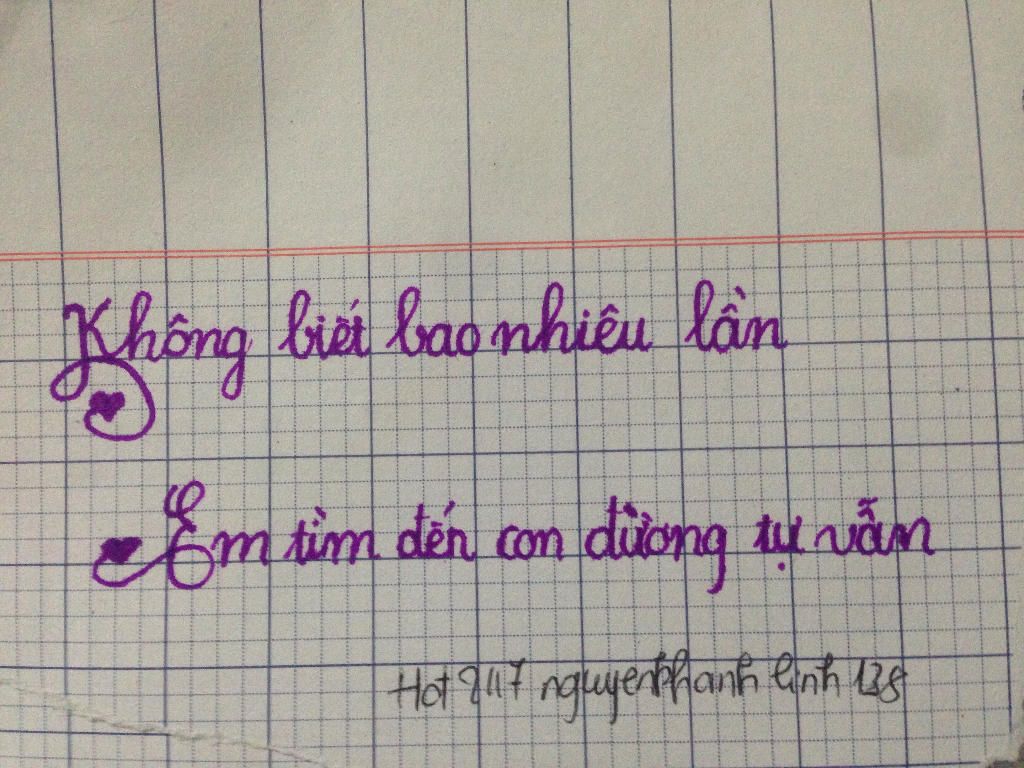 Không biết bao nhiêu lần
Em tìm đến con đường tự vẫn
Hot 247 nguyenkhanh linh 138